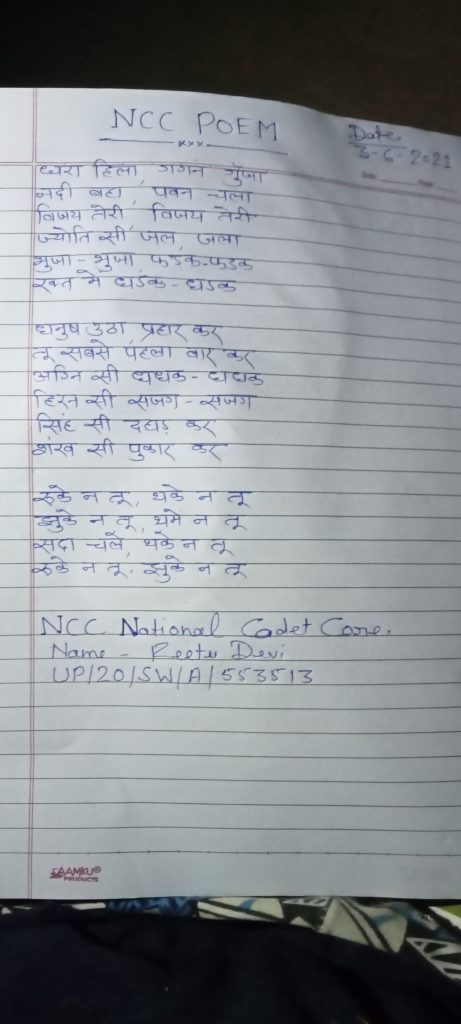 NCC POEM
Date
3-6-2021
धरा हिला, गगन गुँजा
नदी बहा, पवन चला
विजय तेरी, विजय तेरी
ज्योति सी जल, जला
भुजा-भुजा, फडक-फडक
रक्त मे धडक-धडक
धनुष उठा प्रहार कर
तू सबसे पहला वार कर
अग्नि सी धधक-धधक
हिरन सी सजग-सजग
सिंह सी दहाड़ कर
शंख सी पुकार कर
रुके न तू, थके न तू
झुके न तू, थमे न तू
सदा चले, थके न तू
रुके न तू, झुके न तू
NCC National Cadet Core.
Name - Reetu Devi
UP/20/SW/A/553513
SAAMKU®
PRODUCTS